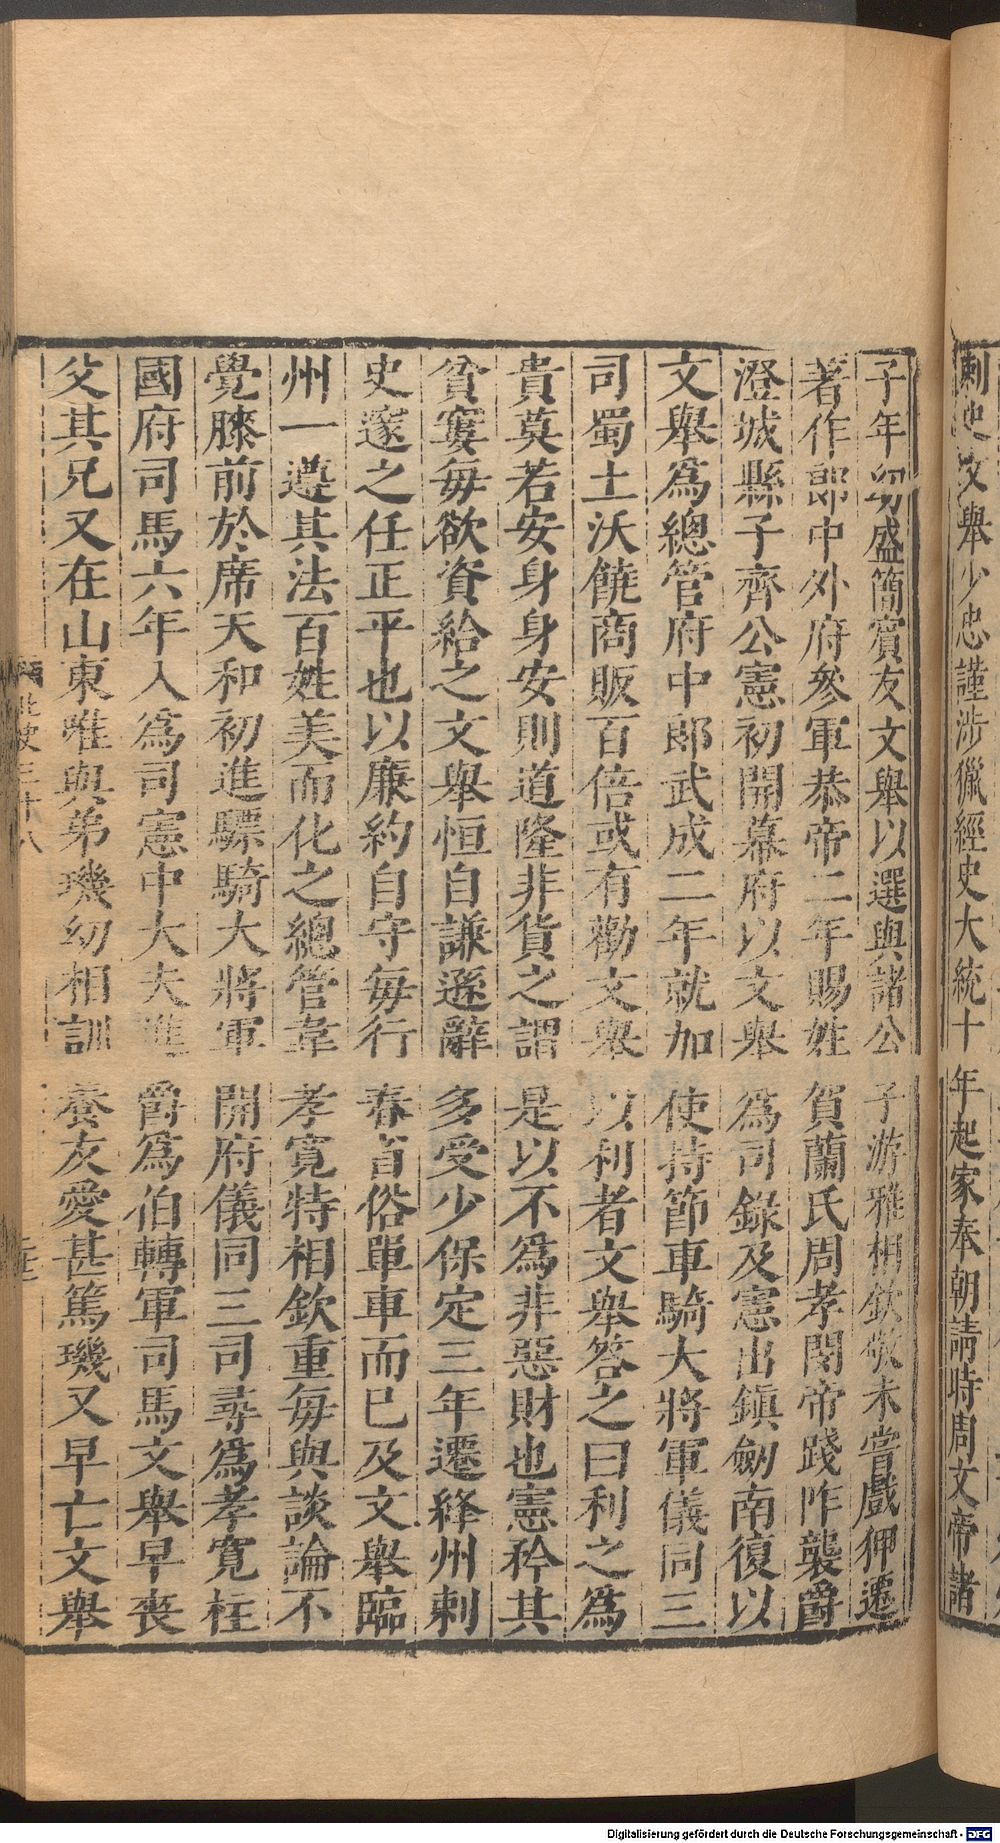 刺史文舉少忠謹涉獵經史大統十年起家奉朝請時周文帝諸
子年幼盛簡賓友文舉以選與諸公子游雅相欽敬未嘗戲狎遷
著作郎中外府參軍恭帝二年賜姓賀蘭氏周孝閔帝踐阼襲爵
澄城縣子齊公憲初開幕府以文舉爲司錄及憲出鎮劒南復以
文舉爲總管府中郎武成二年就加使持節車騎大將軍儀同三
司蜀土沃饒商販百倍或有勸文舉以利者文舉答之曰利之爲
貴莫若安身身安則道隆非貨之謂是以不爲非惡財也憲矜其
貧窶每欲資給之文舉恒自謙遜辭多受少保定三年遷絳州刺
史邃之任正平也以廉約自守每行春省俗單車而已及文舉臨
州一遵其法百姓美而化之總管韋孝寬特相欽重每與談論不
覺膝前於席天和初進驃騎大將軍開府儀同三司尋爲孝寬柱
國府司馬六年入爲司憲中大夫進爵爲伯轉軍司馬文舉早喪
父其兄又在山東唯與弟璣幼相訓養友愛甚篤璣又早亡文舉
Digitalisierung gefördert durch die Deutsche Forschungsgemeinschaft - DFG